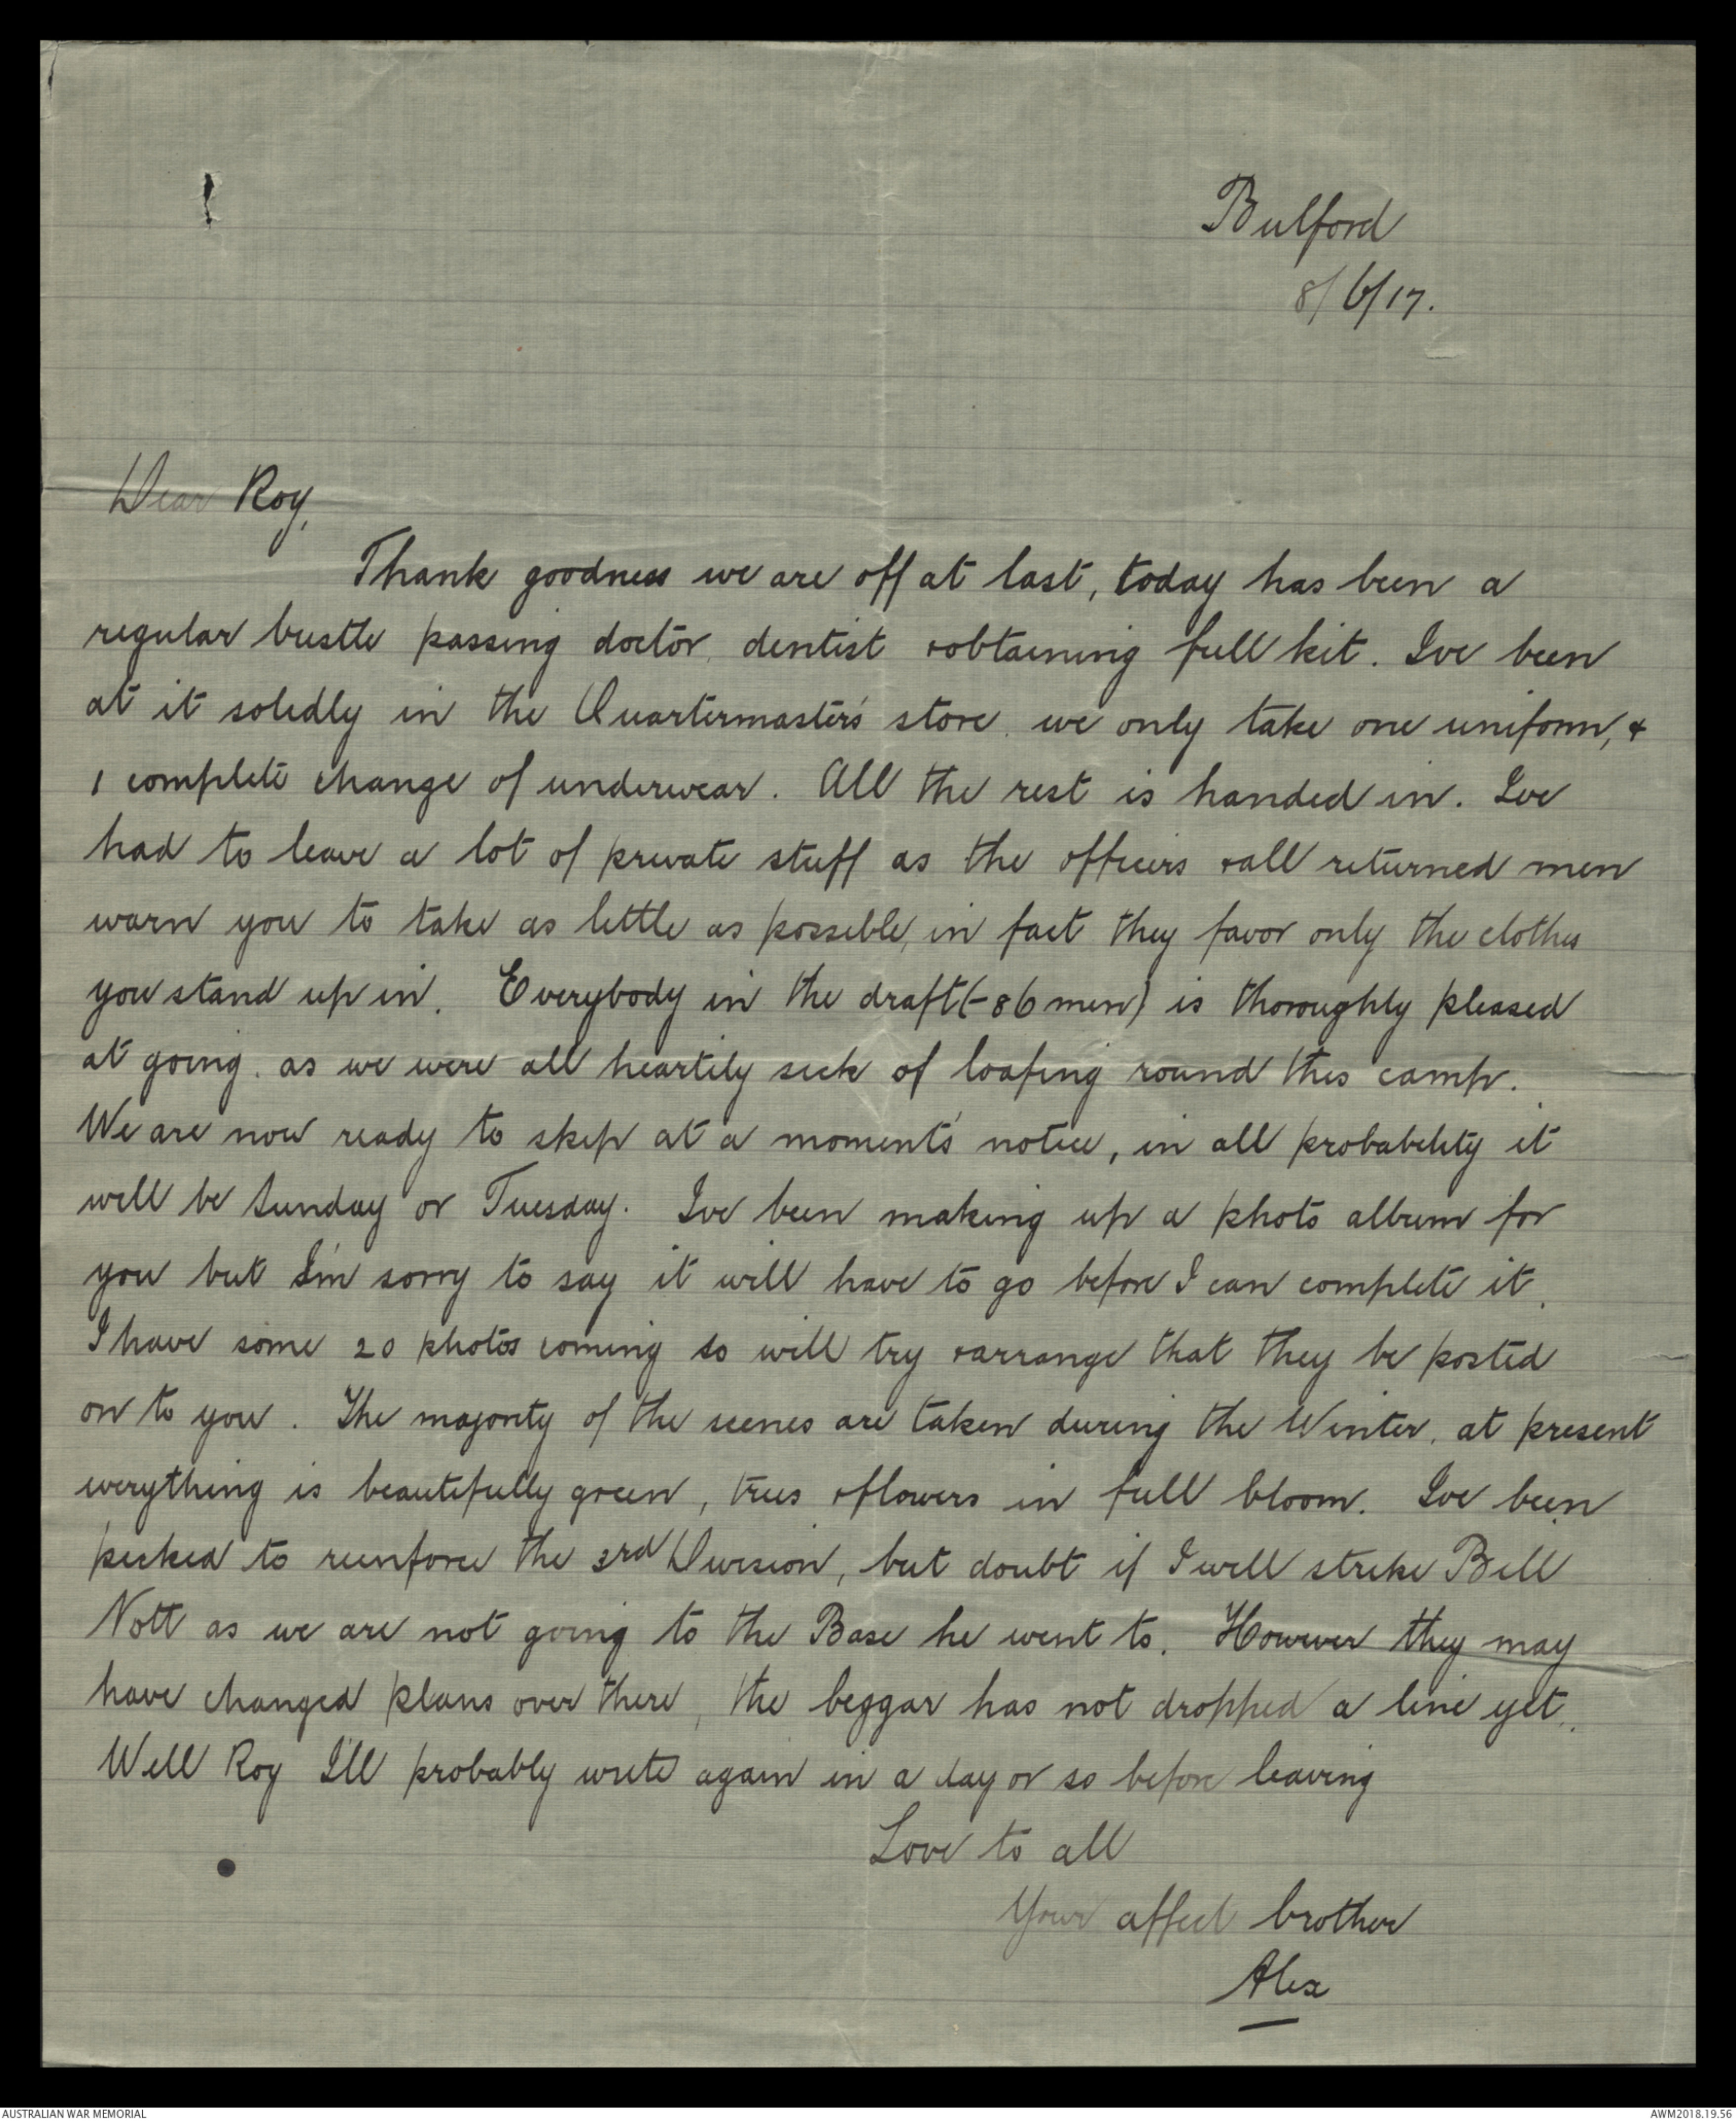 Bulford
8/6/17.
Dear Roy,
Thank goodness we are off at last, today has been a
regular bustle passing doctor, dentist & obtaining full kit. Ive been
at it solidly in the Quartermaster's store, we only take one uniform, &
1 complete change of underwear. All the rest is handed in. Ive
had to leave a lot of private stuff as the officers & all returned men
warn you to take as little as possible, in fact they favor only the clothes
you stand up in. Everybody in the draft (-86 men) is thoroughly pleased
at going, as we were all heartily sick of loafing round this camp.
We are now ready to skip at a moment's notice, in all probability it
will be Sunday or Tuesday. Ive been making up a photo album for
you but I'm sorry to say it will have to go before I can complete it.
I have some 20 photos coming so will try & arrange that they be posted
on to you. The majority of the scenes are taken during the Winter, at present
everything is beautifully green, trees & flowers in full bloom. Ive been
picked to reinforce the 3rd Division, but doubt if I will strike Bill
Nott as we are not going to the Base he went to. However they may
have changed plans over there, the beggar has not dropped a line yet.
Well Roy I'll probably write again in a day or so before leaving
Love to all
Your affect brother
Alex
AUSTRALIAN WAR MEMORIAL
AWM2018.19.56